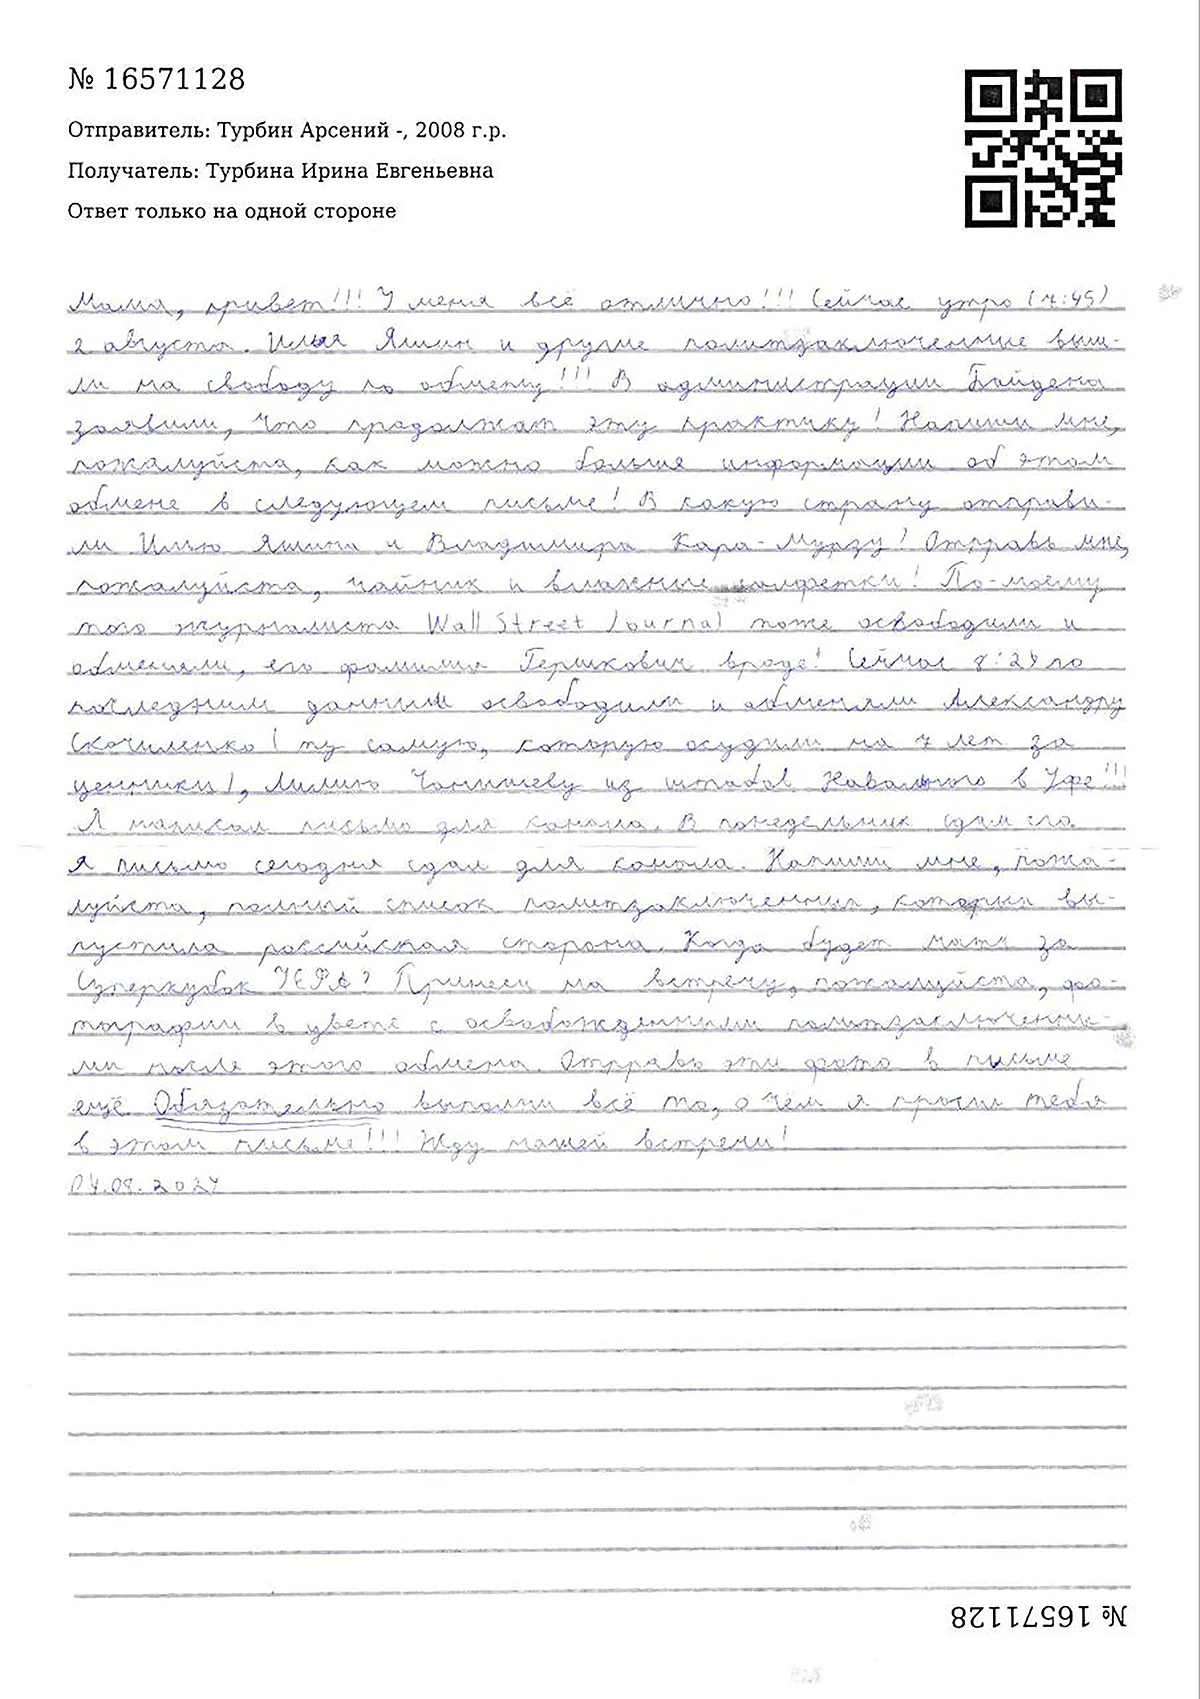 № 16571128
Отправитель: Турбин Арсений -, 2008 г.р.
Получатель: Турбина Ирина Евгеньевна
Ответ только на одной стороне
Мама, привет!!! У меня всё отлично!!! Сейчас утро (7:45)
2 августа. Илья Яшин и другие политзаключенные выш-
ли на свободу по обмену!!! В администрации Байдена
заявили, что продолжат эту практику! Напиши мне,
пожалуйста, как можно больше информации об этом
обмене в следующем письме! В какую страну отправи-
ли Илью Яшина и Владимира Кара-Мурзу? Отправь мне,
пожалуйста, чайник и влажные салфетки! По-моему
того журналиста Wall Street Journal тоже освободили и
обменяли, его фамилия Гершкович вроде! Сейчас 8:24 по
последним данным освободили и обменяли Александру
Скочиленко (ту самую, которую осудили на 7 лет за
ценники), Лилию Чанышеву из штабов Навального в Уфе!!!
Я написал письмо для канала. В понедельник сдам его
Я письмо сегодня сдал для канала. Напиши мне, пожа-
луйста, полный список политзаключенных, которых вы-
пустила российская сторона. Когда будет матч за
Суперкубок УЕФА? Принеси на встречу, пожалуйста, фо-
тографии в цвете с освобожденными политзаключенны-
ми после этого обмена. Отправь эти фото в письме
ещё. Обязательно выполни всё то, о чём я просил тебя
в этом письме!!! Жду нашей встречи!
04.08.2024
№ 16571128